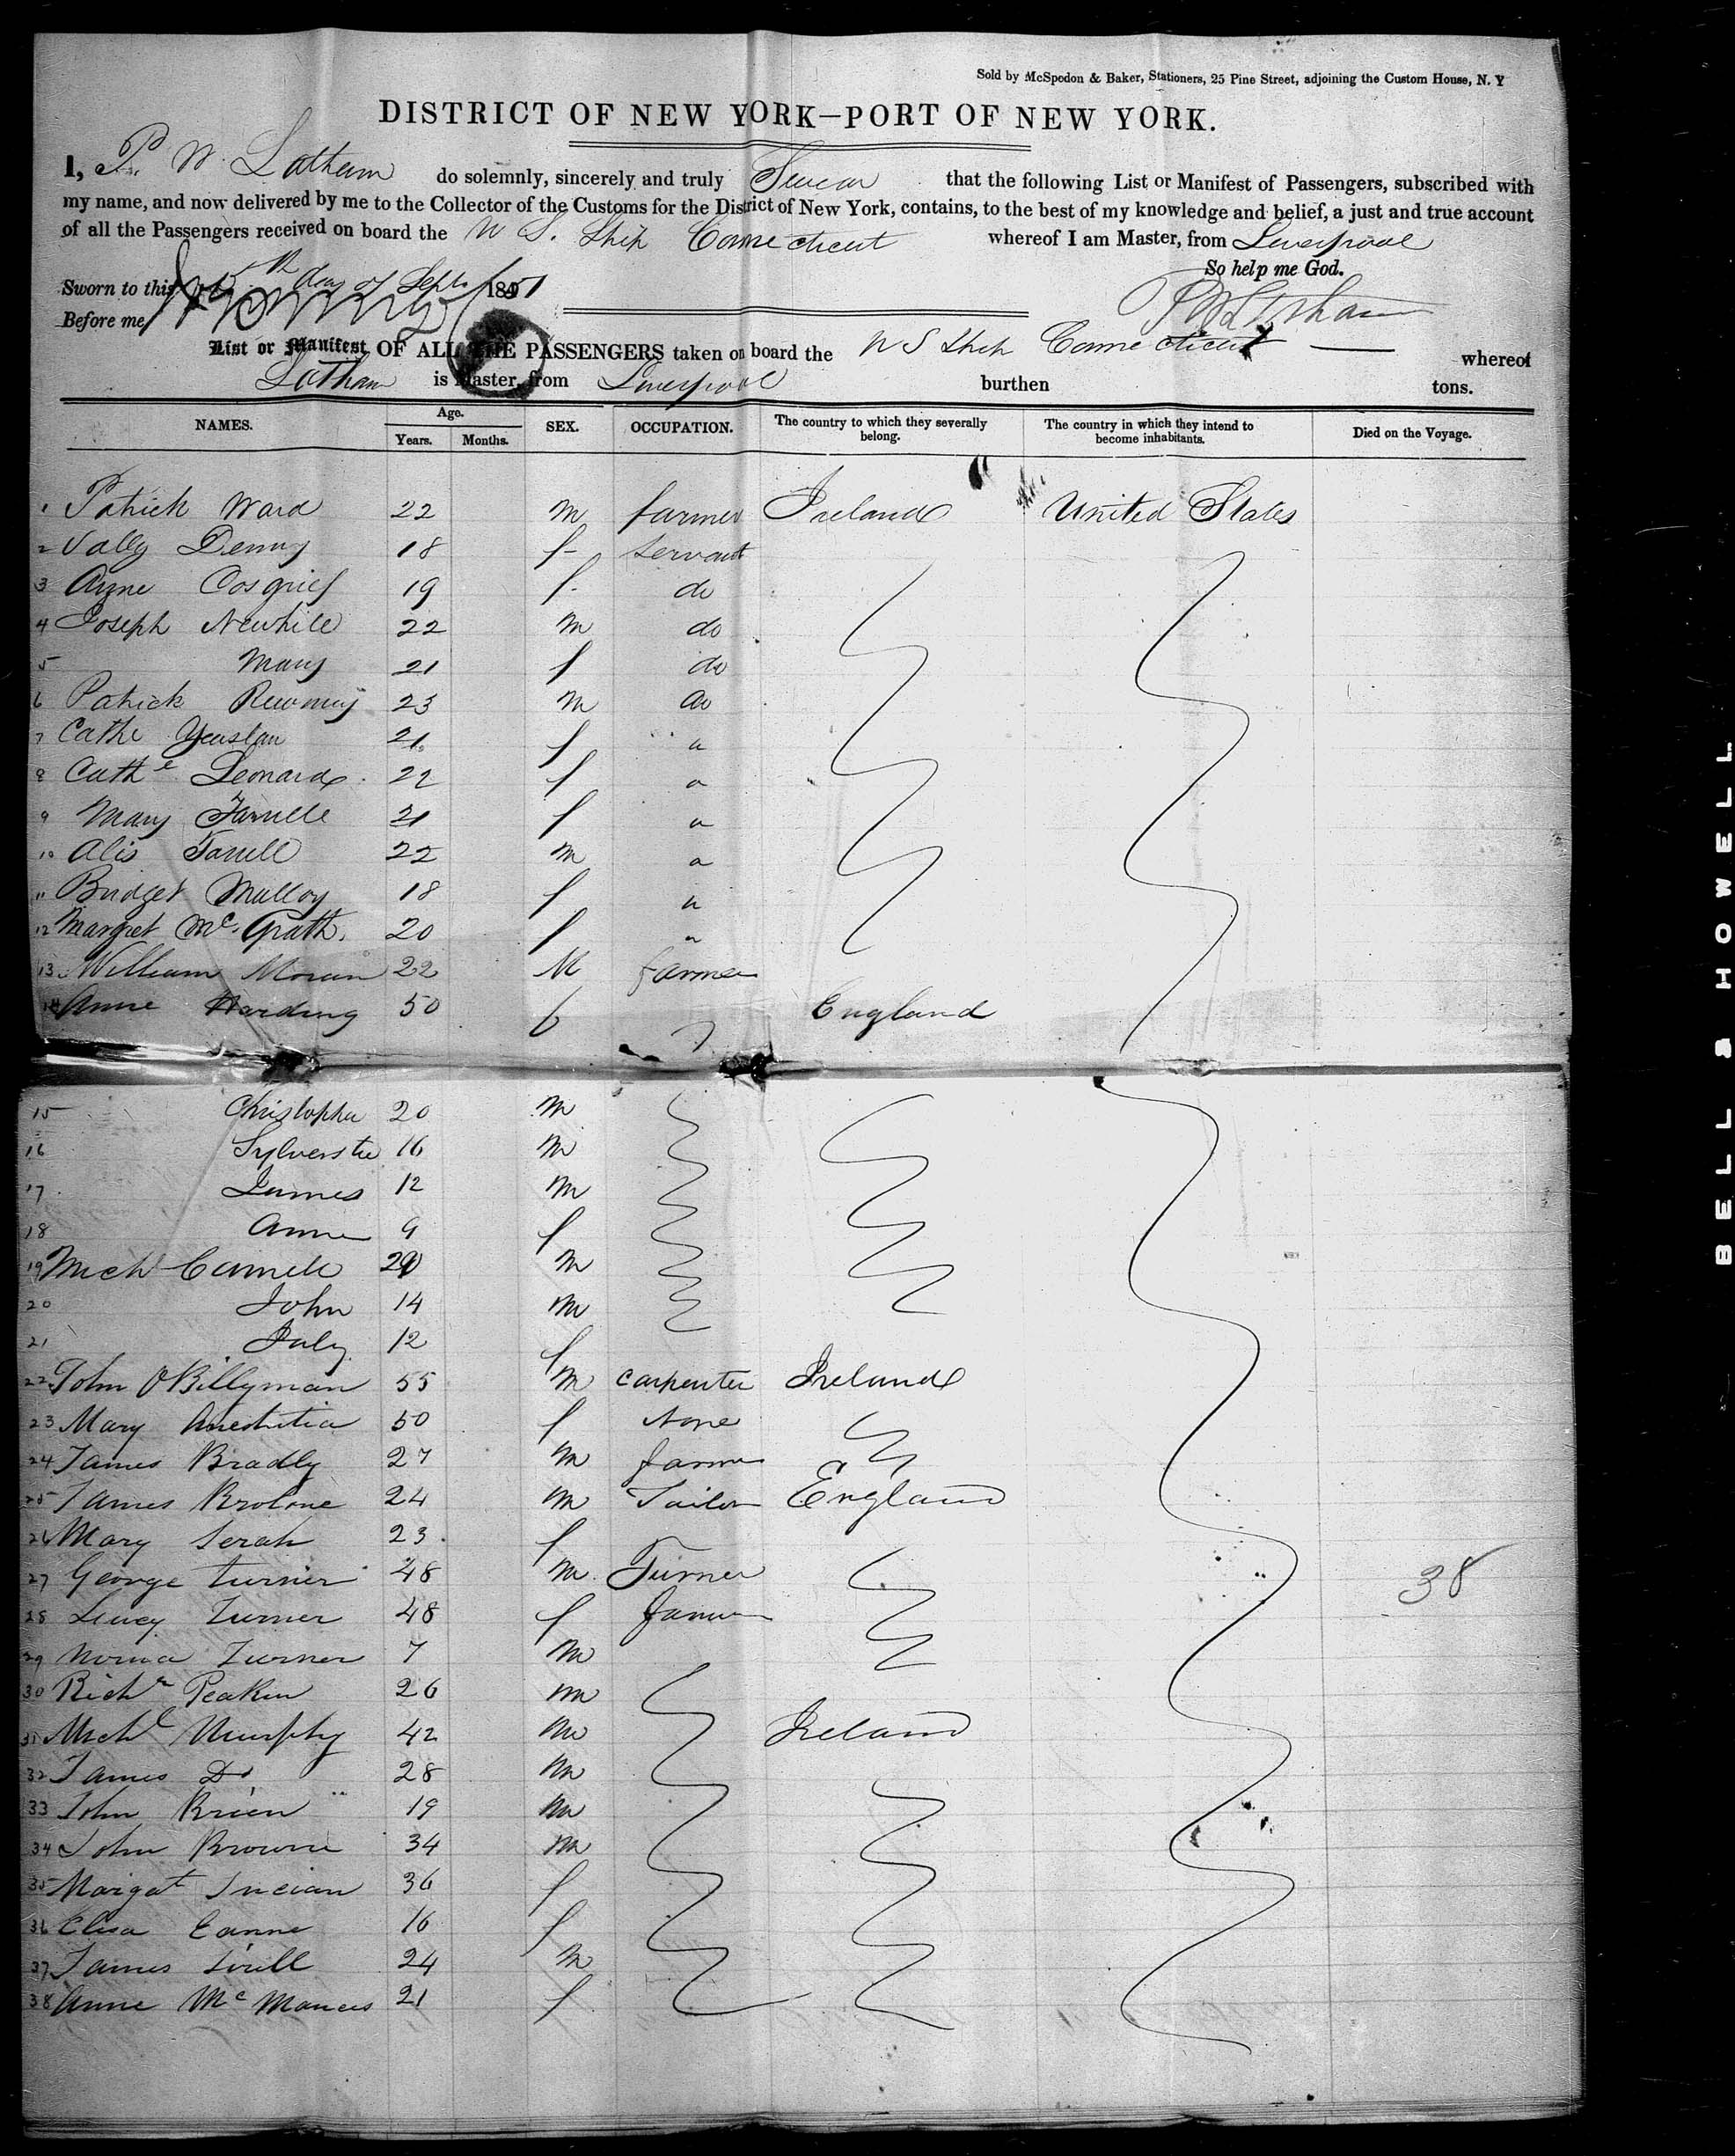 Sold by McSpedon & Baker, Stationers, 25 Pine Street, adjoining the Custom House, N. Y
DISTRICT OF NEW YORK—PORT OF NEW YORK.
I, P. W. Latham do solemnly, sincerely and truly Swear that the following List or Manifest of Passengers, subscribed with
my name, and now delivered by me to the Collector of the Customs for the District of New York, contains, to the best of my knowledge and belief, a just and true account
of all the Passengers received on board the N S. Ship Connecticut whereof I am Master, from Liverpool
So help me God.
Sworn to this 15th day of Sept. 1851
Before me,
P W Latham
List or Manifest OF ALL THE PASSENGERS taken on board the N S Ship Connecticut whereof
Latham is Master, from Liverpool burthen tons.
NAMES. Age. Years. Months. SEX. OCCUPATION. The country to which they severally belong. The country in which they intend to become inhabitants. Died on the Voyage.
1 Patrick Ward 22 m farmer Ireland United States
2 Denny 18 f servant
3 Anne Cosgrief 19 f do
4 Joseph Newhill 22 m do
5 Mary 21 f do
6 Patrick 23 m do
7 Cathe 21 f "
8 Cathe Leonard 22 f "
9 Mary 21 f "
10 Alis Farrell 22 m "
11 Bridget Malloy 18 f "
12 Margret Mc Grath. 20 f "
13 William Moran 22 M farmer
14 Anne Harding 50 f England
15 Christopher 20 m
16 Sylverster 16 m
17 James 12 m
18 Anne 9 f
19 Mich m
20 John 14 m
21 July 12 f
22 John O'Billyman 55 m carpenter Ireland
23 Mary 50 f None
24 James Bradly 27 m farmer
25 James 24 m Tailor England
26 Mary Serah 23 f
27 George Turner 48 m. Turner
28 Lucy Turner 48 f
29 Turner 7 m
30 Richd Peakin 26 m
31 Michl Murphy 42 m Ireland
32 James Do 28 m
33 John Brien 19 m
34 John Browne 34 m
35 Margat 36 f
36 Elisa 16 f
37 James 24 m
38 Anne Mc Manus 21 f
38
BELL & HOWELL